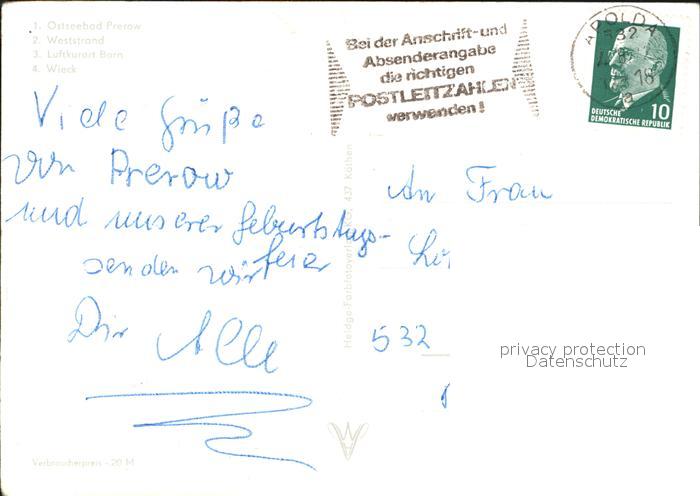 1. Ostseebad Prerow
2. Weststrand
3. Luftkurort Born
4. Wieck
Bei der Anschrift- und
Absenderangabe
die richtigen
POSTLEITZAHLEN
verwenden!
APOLDA
532
18
a
10
DEUTSCHE
DEMOKRATISCHE REPUBLIK
Viele Grüße
von Prerow
und unserer Geburtstags-
feier
senden wir
Dir Alle
An Frau
532
privacy protection
Datenschutz
437 Köthen
Verbraucherpreis -20 M